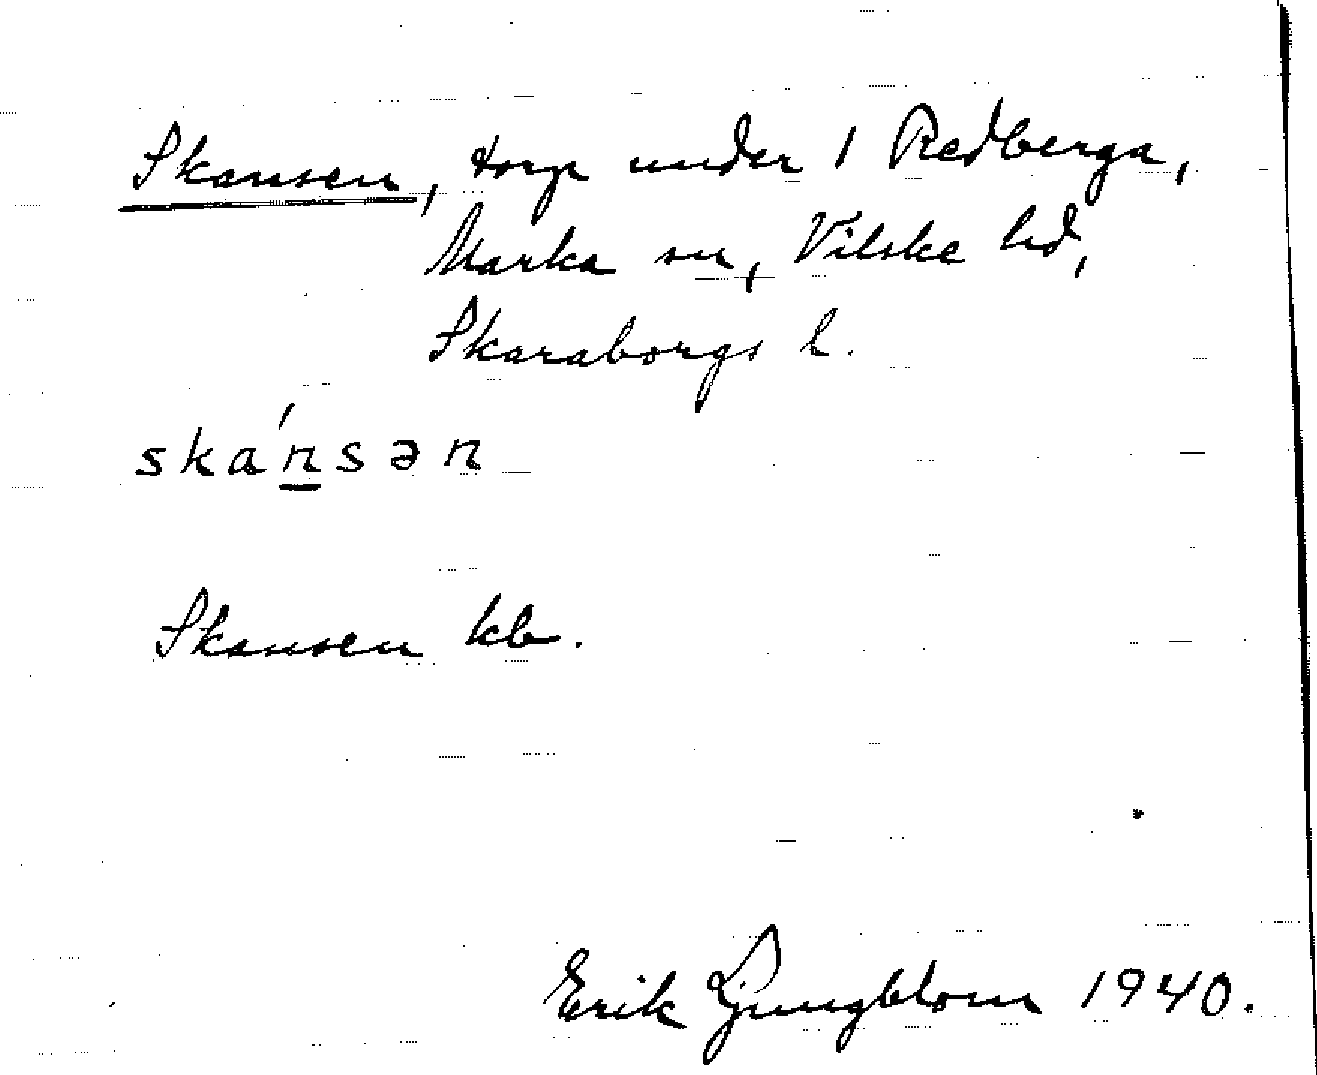 Skansen, torp under 1 Redberga,
Marka sn, Vilske hd,
Skaraborgs l.
ska´nsən
Skansen kb.
Erik Ljungblom 1940.